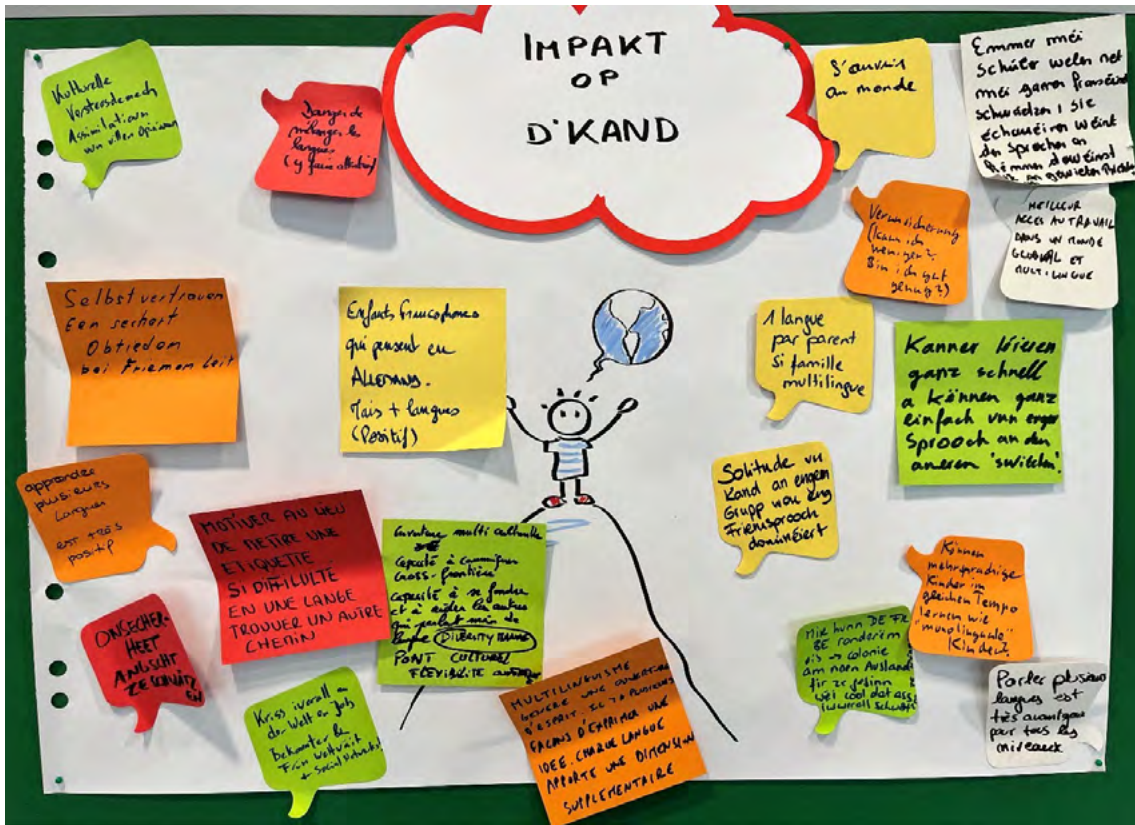 IMPAKT
OP
D'KAND
Kulturelle
Assimilatioun
vun villen Opinionen
Danger de
mélanger les
langues
(y faire attention)
S'ouvrir
au monde
Emmer méi
Schüler welen net
méi gären franséisch
schwätzen, sie
échouéiren wéint
den Sproochen an
kommen dowéinst
Verunsicherung
(kann ich
weniger?
Bin ich gut
genug?)
MEILLEUR
ACCES AU TRAVAIL
DANS UN MONDE
GLOBAL ET
MULTILINGUE
Selbstvertrauen
Een sechert
Optriedem
bei Friemen Leit
Enfants francophones
qui pensent en
ALLEMAND.
Mais + langues
(Positif)
1 langue
par parent
si famille
multilingue
Kanner léieren
ganz schnell
a können ganz
einfach vun enger
Sprooch an den
aneren 'switchen'.
apprendre
plusieurs
langues
est très
positif
MOTIVER AU LIEU
DE METTRE UNE
ETIQUETTE
SI DIFFICULTÉ
EN UNE LANGE
TROUVER UN AUTRE
CHEMIN
Ouverture multi culturelle
capacité à communiquer
cross-frontière
capacité à se fondre
et à aider les autres
qui parlent moins de
langue DIVERSITY
PONT CULTUREL
FLEXIBILITE
Solitude vu
Kand an engem
Grupp wou eng
Friemsprooch
dominéiert
Können
mehrsprachige
Kinder im
gleichen Tempo
lernen wie
"monolinguale"
Kinder?
ONSECHER-
HEET
ANGSCHT
ZE SCHWÄTZEN
Kriss iwerall an
der Welt en Job
Bekannter &
Frënn weltwäit
+ Social Networks
MULTILINGUISME
GENERE UNE OUVERTURE
D'ESPRIT. IL Y A PLUSIEURS
FACONS D'EXPRIMER UNE
IDEE. CHAQUE LANGUE
APPORTE UNE DIMENSION
SUPPLEMENTAIRE
Mir hunn DE FR
BE Kanner im
colonie
am noen Ausland
fir ze gesinn
wéi cool dat ass
iwwerall
Parler plusieurs
langues est
très avantageux
pour tous les
niveaux